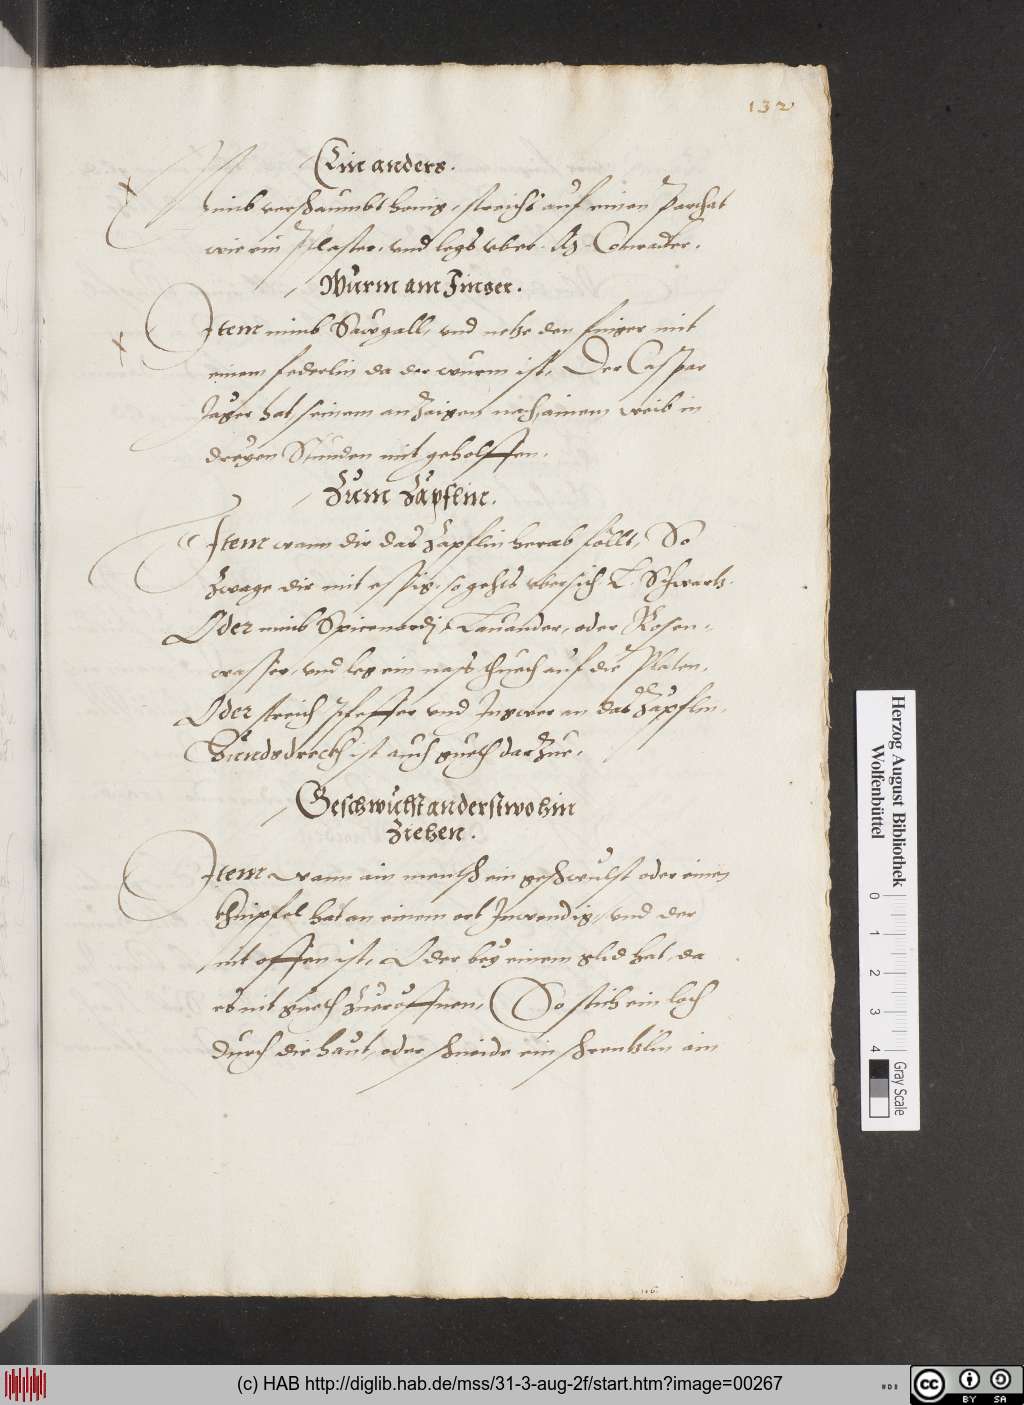 132
Ein anders.
nimb verschaumbt honig, streichs auf einen Parchat
wie ein Plaster, und legs vber. Conradter.
Wurm am Finger.
Item nimb Sawgall, vnd netze den finger mit
einem federlin da der wurm ist, Der Caspar
Jäger hat seinem anzaigen nach, ainem weib in
dreyen Stunden mit geholffen.
Zum Zäpflin.
Item wann dir das Zäpflin herab fällt, So
Zwage dir mit essig, so gehts vbersich. L. Schwartz.
Oder nimb Spicenardj, Lauander, oder Rosen-
wasser, vnd leg ein nass thuech auf die Platen.
Oder streich Pfeffer vnd Ingwer an das Zäpflin.
Hundsdreckh ist auch gueth darzue.
Geschwulst anderstwohin
Ziehen.
Item wann ain mensch ein geschwulst oder einen
khnipfel hat an einem ort Inwendig, vnd der
nit offen ist, Oder bey einem glid hat, da
es nit gueth zueröffnen, So stich ein loch
durch die haut, oder schneide ein schrentzlin ein
Herzog August Bibliothek
Wolfenbüttel
0 1 2 3 4
Gray Scale
(c) HAB http://diglib.hab.de/mss/31-3-aug-2f/start.htm?image=00267
cc BY SA